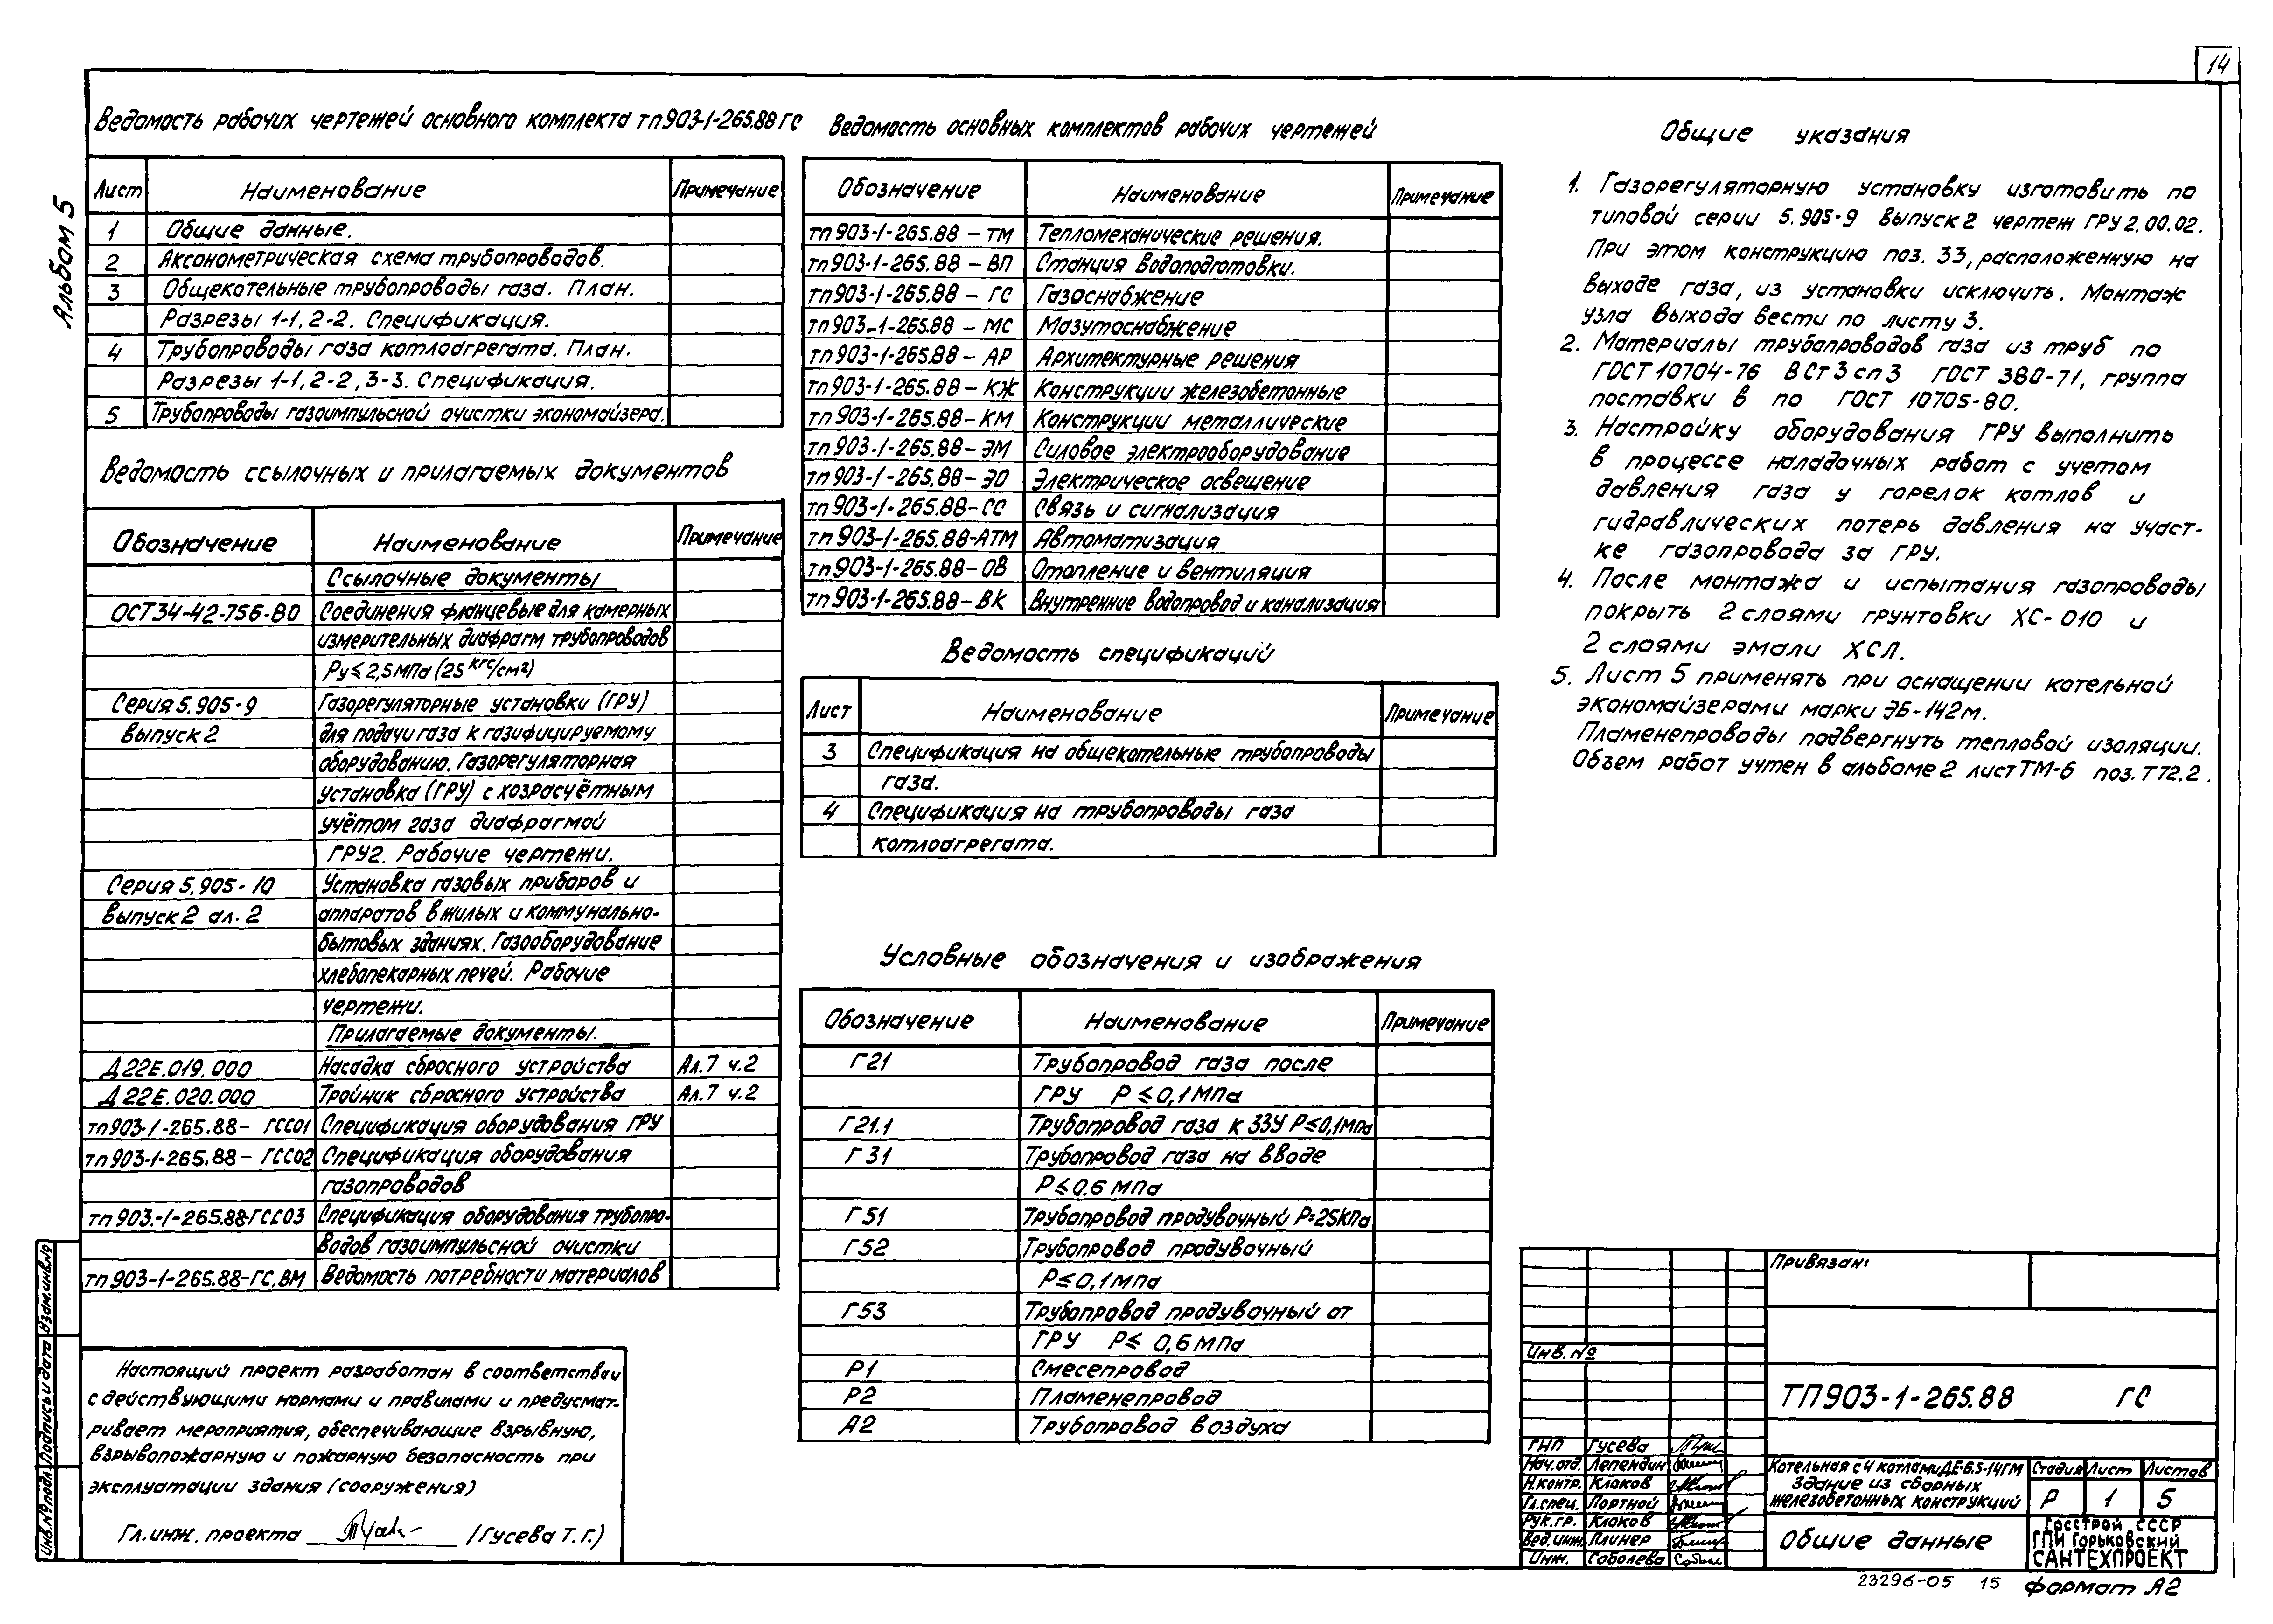 14
Альбом 5
Ведомость рабочих чертежей основного комплекта тп903-1-265.88 ГС
Лист Наименование Примечание
1 Общие данные.
2 Аксонометрическая схема трубопроводов.
3 Общекотельные трубопроводы газа. План.
Разрезы 1-1, 2-2. Спецификация.
4 Трубопроводы газа котлоагрегата. План.
Разрезы 1-1, 2-2, 3-3. Спецификация.
5 Трубопроводы газоимпульсной очистки экономайзера.
Ведомость ссылочных и прилагаемых документов
Обозначение Наименование Примечание
Ссылочные документы
ОСТ34-42-756-80 Соединения фланцевые для камерных
измерительных диафрагм трубопроводов
Ру ≤ 2,5 МПа (25 кгс/см²)
Серия 5.905-9 Газорегуляторные установки (ГРУ)
выпуск 2 для подачи газа к газифицируемому
оборудованию. Газорегуляторная
установка (ГРУ) с хозрасчётным
учётом газа диафрагмой
ГРУ2. Рабочие чертежи.
Серия 5.905-10 Установка газовых приборов и
выпуск 2 ал. 2 аппаратов в жилых и коммунально-
бытовых зданиях. Газооборудование
хлебопекарных печей. Рабочие
чертежи.
Прилагаемые документы.
Д22Е.019.000 Насадка сбросного устройства Ал.7 ч.2
Д22Е.020.000 Тройник сбросного устройства Ал.7 ч.2
тп903-1-265.88- ГСС01 Спецификация оборудования ГРУ
тп903-1-265.88- ГСС02 Спецификация оборудования
газопроводов
тп903.-1-265.88-ГСС03 Спецификация оборудования трубопро-
водов газоимпульсной очистки
тп903-1-265.88-ГС.ВМ Ведомость потребности материалов
Настоящий проект разработан в соответствии
с действующими нормами и правилами и предусмат-
ривает мероприятия, обеспечивающие взрывную,
взрывопожарную и пожарную безопасность при
эксплуатации здания (сооружения)
Гл. инж. проекта /Гусева Т.Г./
Взам.инв.№
Подпись и дата
Инв.№подл.
Ведомость основных комплектов рабочих чертежей
Обозначение Наименование Примечание
тп903-1-265.88 - ТМ Тепломеханические решения.
тп903-1-265.88 - ВП Станция водоподготовки.
тп903-1-265.88 - ГС Газоснабжение
тп903-1-265.88 - МС Мазутоснабжение
тп903-1-265.88 - АР Архитектурные решения
тп903-1-265.88 - КЖ Конструкции железобетонные
тп903-1-265.88 - КМ Конструкции металлические
тп903-1-265.88 - ЭМ Силовое электрооборудование
тп903-1-265.88 - ЭО Электрическое освещение
тп903-1-265.88-СС Связь и сигнализация
тп903-1-265.88-АТМ Автоматизация
тп903-1-265.88-ОВ Отопление и вентиляция
тп903-1-265.88-ВК Внутренние водопровод и канализация
Ведомость спецификаций
Лист Наименование Примечание
3 Спецификация на общекотельные трубопроводы
газа.
4 Спецификация на трубопроводы газа
котлоагрегата.
Условные обозначения и изображения
Обозначение Наименование Примечание
Г21 Трубопровод газа после
ГРУ Р ≤ 0,1 МПа
Г21.1 Трубопровод газа к ЗЗУ Р≤0,1МПа
Г31 Трубопровод газа на вводе
Р ≤ 0.6 МПа
Г51 Трубопровод продувочный Р=25кПа
Г52 Трубопровод продувочный
Р≤0,1МПа
Г53 Трубопровод продувочный от
ГРУ Р≤ 0,6 МПа
Р1 Смесепровод
Р2 Пламенепровод
А2 Трубопровод воздуха
Общие указания
1. Газорегуляторную установку изготовить по
типовой серии 5.905-9 выпуск 2 чертеж ГРУ 2.00.02.
При этом конструкцию поз. 33, расположенную на
выходе газа, из установки исключить. Монтаж
узла выхода вести по листу 3.
2. Материалы трубопроводов газа из труб по
ГОСТ 10704-76 ВСт3сп3 ГОСТ 380-71, группа
поставки В по ГОСТ 10705-80.
3. Настройку оборудования ГРУ выполнить
в процессе наладочных работ с учетом
давления газа у горелок котлов и
гидравлических потерь давления на участ-
ке газопровода за ГРУ.
4. После монтажа и испытания газопроводы
покрыть 2 слоями грунтовки ХС-010 и
2 слоями эмали ХСЛ.
5. Лист 5 применять при оснащении котельной
экономайзерами марки ЭБ-142м.
Пламенепроводы подвергнуть тепловой изоляции.
Объем работ учтен в альбоме 2 лист ТМ-6 поз. Т72.2.
Привязан:
Инв.№
ТП903-1-265.88 ГС
ГИП Гусева
Нач.отд. Лепендин
Н.контр. Клоков
Гл.спец. Портной
Рук.гр. Клоков
Вед.инж. Плинер
Инж. Соболева
Котельная с 4 котлами ДЕ-6.5-14ГМ
Здание из сборных
железобетонных конструкций
Стадия Лист Листов
Р 1 5
Общие данные
Госстрой СССР
ГПИ Горьковский
САНТЕХПРОЕКТ
23296-05 15 формат А2